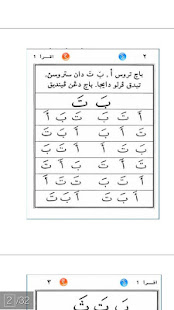 ٢ اقرا ١
باچ تروس أ , بَ تَ دان ستروسڽ.
تيدق ڤرلو دايجا. باچ دڠن ڤينديق
بَ تَ
بَ تَ أَ تَ بَ أَ
بَ أَ تَ أَ بَ تَ
بَ تَ أَ أَ تَ بَ
تَ أَ بَ تَ أَ بَ
بَ تَ أَ تَ تَ أَ
أَ بَ تَ أَ بَ تَ
اقرا ١ ٣
بَ تَ ثَ
2/32